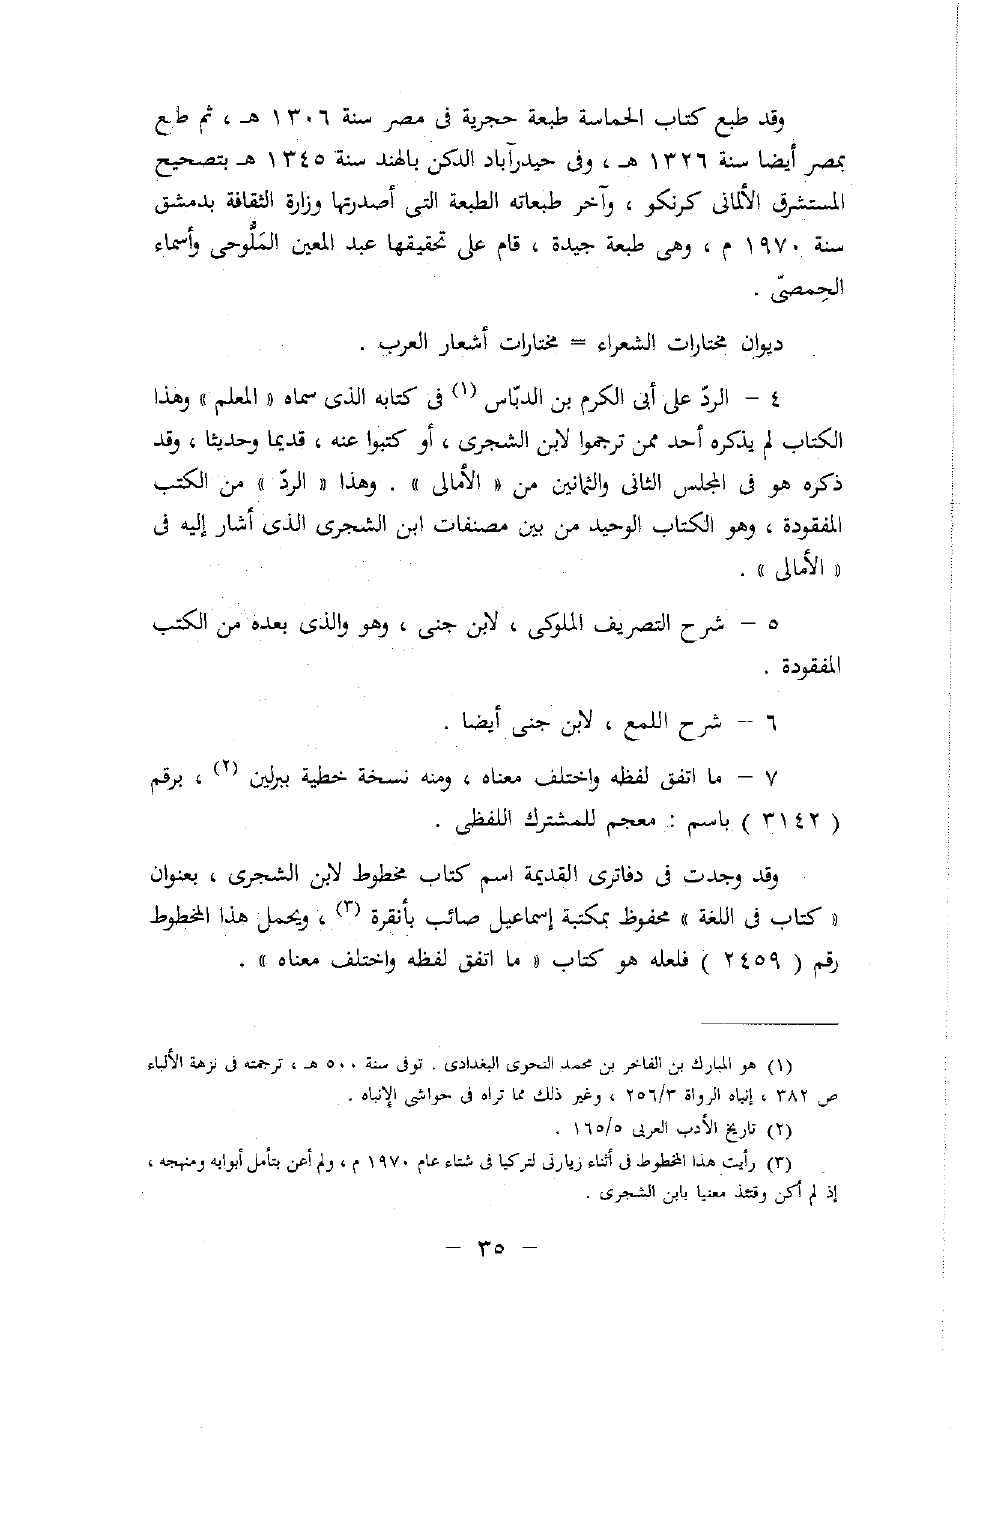 وقد طبع كتاب الحماسة طبعة حجرية فى مصر سنة ١٣٠٦ هـ ، ثم طبع
بمصر أيضا سنة ١٣٢٦ هـ ، وفى حيدرآباد الدكن بالهند سنة ١٣٤٥ هـ بتصحيح
المستشرق الألمانى كرنكو ، وآخر طبعاته الطبعة التى أصدرتها وزارة الثقافة بدمشق
سنة ١٩٧٠ م ، وهى طبعة جيدة ، قام على تحقيقها عبد المعين المَلُّوحى وأسماء
الحِمصىّ .
ديوان مختارات الشعراء = مختارات أشعار العرب .
٤ – الردّ على أبى الكرم بن الدبّاس (١) فى كتابه الذى سماه « المعلم » وهذا
الكتاب لم يذكره أحد ممن ترجموا لابن الشجرى ، أو كتبوا عنه ، قديما وحديثا ، وقد
ذكره هو فى المجلس الثانى والثمانين من « الأمالى » . وهذا « الردّ » من الكتب
المفقودة ، وهو الكتاب الوحيد من بين مصنفات ابن الشجرى الذى أشار إليه فى
« الأمالى » .
٥ – شرح التصريف الملوكى ، لابن جنى ، وهو والذى بعده من الكتب
المفقودة .
٦ – شرح اللمع ، لابن جنى أيضا .
٧ – ما اتفق لفظه واختلف معناه ، ومنه نسخة خطية ببرلين (٢) ، برقم
( ٣١٤٢ ) باسم : معجم للمشترك اللفظى .
وقد وجدت فى دفاترى القديمة اسم كتاب مخطوط لابن الشجرى ، بعنوان
« كتاب فى اللغة » محفوظ بمكتبة إسماعيل صائب بأنقرة (٣) ، ويحمل هذا المخطوط
رقم ( ٢٤٥٩ ) فلعله هو كتاب « ما اتفق لفظه واختلف معناه » .
(١) هو المبارك بن الفاخر بن محمد النحوى البغدادى . توفى سنة ٥٠٠ هـ ، ترجمته فى نزهة الألباء
ص ٣٨٢ ، إنباه الرواة ٢٥٦/٣ ، وغير ذلك مما تراه فى حواشى الإنباه .
(٢) تاريخ الأدب العربى ١٦٥/٥ .
(٣) رأيت هذا المخطوط فى أثناء زيارتى لتركيا فى شتاء عام ١٩٧٠ م ، ولم أعن بتأمل أبوابه ومنهجه ،
إذ لم أكن وقتئذ معنيا بابن الشجرى .
– ٣٥ –